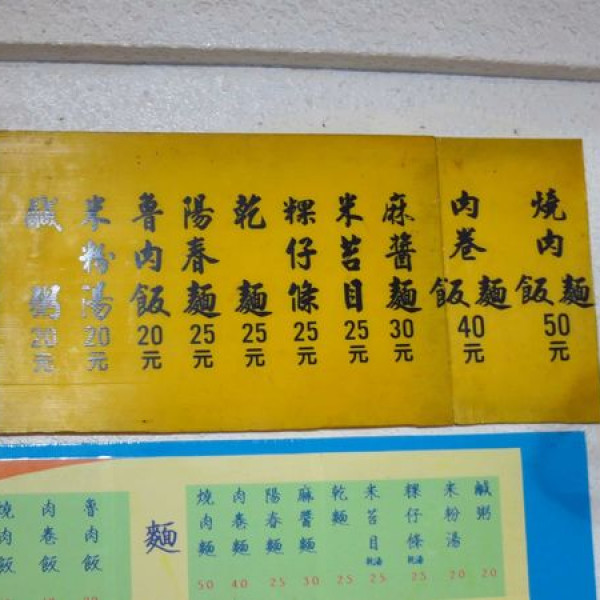 燒肉飯麵50元
肉卷飯麵40元
麻醬麵30元
米苔目25元
粿仔條25元
乾麵25元
陽春麵25元
魯肉飯20元
米粉湯20元
鹹粥20元
麵
燒肉麵50
肉卷麵40
陽春麵25
麻醬麵30
乾麵25
米苔目乾湯25
粿仔條乾湯25
米粉湯20
鹹粥20
燒肉飯
肉卷飯
魯肉飯